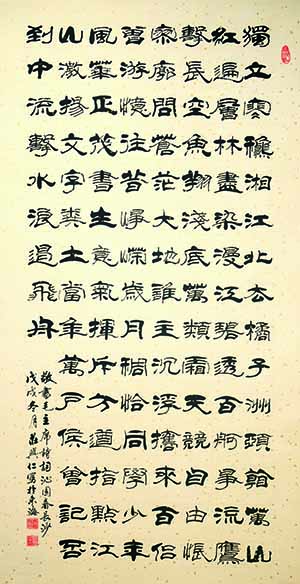 獨立寒穐湘江北去橘子洲頭看萬山
紅遍層林盡染漫江碧透百舸爭流鷹
擊長空魚翔淺底萬類霜天競自由悵
寥廓問蒼茫大地誰主沉浮攜來百侶
曾游憶往昔崢嶸歲月稠恰同學少年
風華正茂書生意氣揮斥方遒指點江
山激揚文字糞土當年萬戶侯曾記否
到中流擊水浪遏飛舟
敬書毛主席詩詞沁園春長沙
戊戌冬月興仁寫於東海